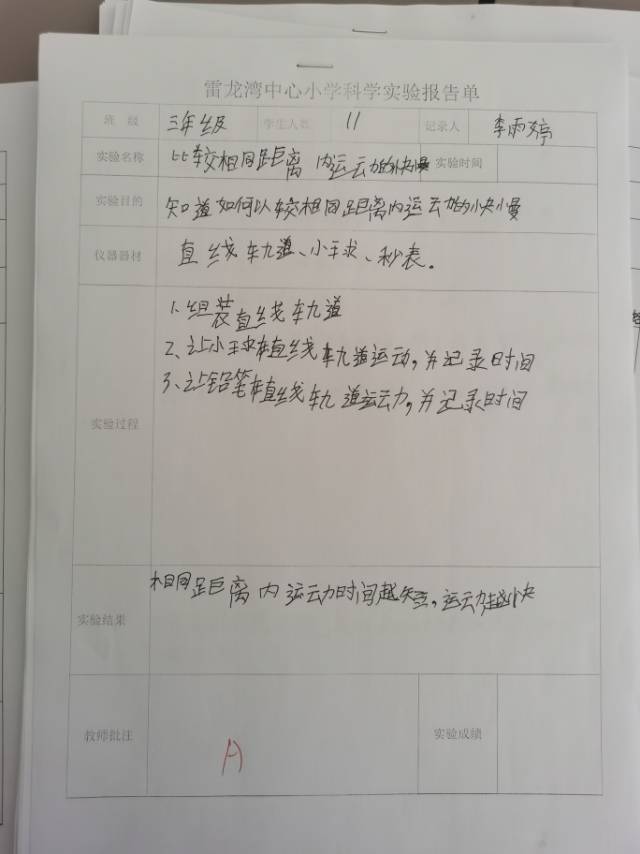 雷龙湾中心小学科学实验报告单
班 级 三年级 学生人数 11 记录人 李雨婷
实验名称 比较相同距离内运动的快慢 实验时间
实验目的 知道如何比较相同距离内运动的快慢
仪器器材 直线轨道、小球、秒表。
1、组装直线轨道
2、让小球在直线轨道运动,并记录时间
3、让铅笔在直线轨道运动,并记录时间
实验过程
相同距离内运动时间越短,运动越快
实验结果
教师批注 A 实验成绩